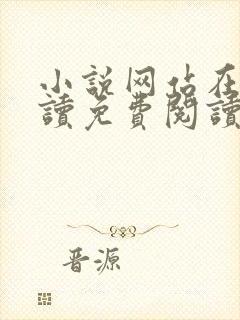 小説网站在
讀免費閱讀
晋源